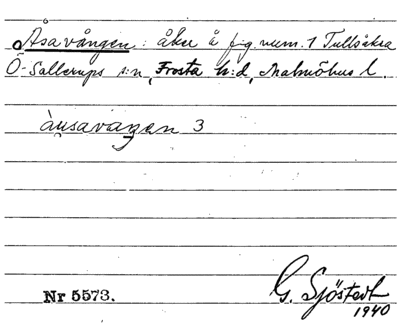 Åsavången: åker å fig. num. 1 Tullsåkra
Ö-Sallerups s:n, Frosta h:d, Malmöhus l.
àu̯savaŋen 3
Nr 5573.
G. Sjöstedt
1940